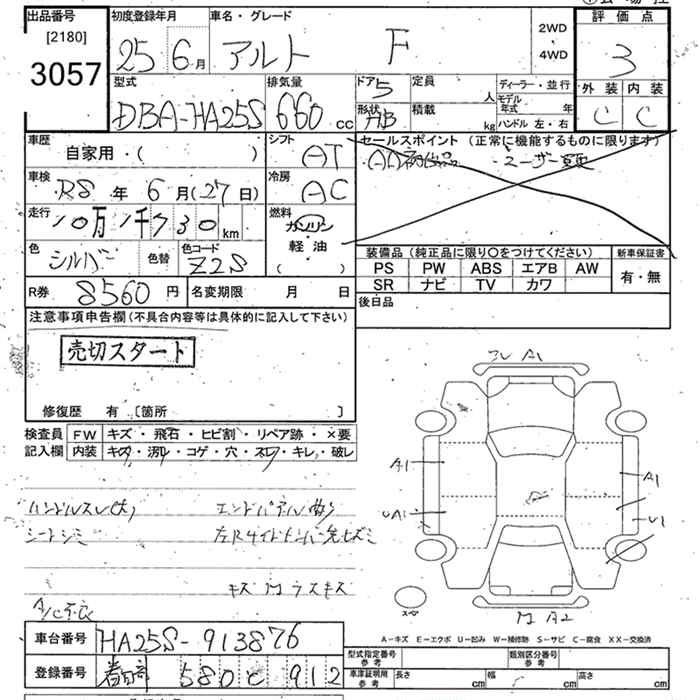 出品番号 初度登録年月 車名・グレード 評価点
[2180]
3057
25 6月 アルト F 2WD・4WD 3
型式 排気量 ドア 5 定員 人 ディーラー・並行 外装 内装
モデル年式 年
DBA-HA25S 660 cc 形状 HB 積載 kg ハンドル 左・右 C C
車歴 シフト セールスポイント (正常に機能するものに限ります)
自家用・( ) AT
車検 冷房
R8 年 6 月 (27日) AC
走行 燃料
10万1千730 km ガソリン
軽油
( )
色 シルバー 色替 色コード Z2S
装備品 (純正品に限り○をつけてください) 新車保証書
PS PW ABS エアB AW 有・無
SR ナビ TV カワ
R券 8560 円 名変期限 月 日
後日品
注意事項申告欄(不具合内容等は具体的に記入して下さい)
売切スタート
修復歴 有 [箇所 ]
検査員 FW キズ・飛石・ヒビ割・リペア跡・×要
記入欄 内装 キズ・汚れ・コゲ・穴・スレ・キレ・破レ
A1
A1
A1
UA1
U1
ハンドルスレ(大)
シートシミ
A/C不良
A2
A－キズ E－エクボ U－凹み W－補修跡 S－サビ C－腐食 XX－交換済
車台番号 HA25S-913876
登録番号 春日部 580 912
型式指定番号 参考 類別区分番号 参考
車庫証明用 参考 長さ cm 幅 cm 高さ cm